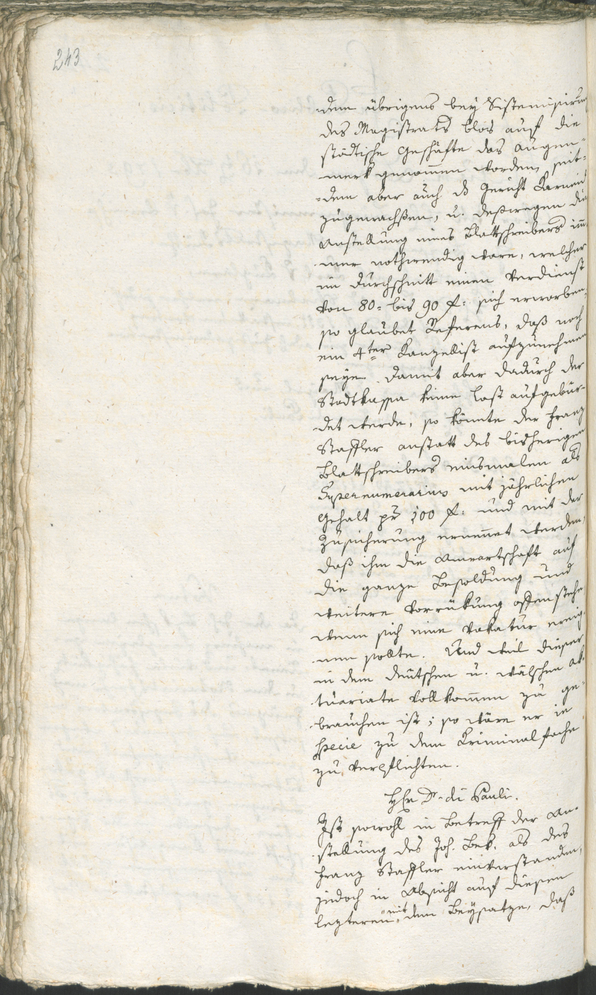 243
dem übrigens bey Sistemisirung
des Magistrats blos auf die
städtische Geschäfte das Augen-
merk genommen worden, seit-
dem aber auch das Gericht Karneid
zugewachsen, u. deßwegen die
Anstellung eines Blattschreibers im-
mer nothwendig ware, welcher
im Durchschnitt einen Verdienst
von 80: bis 90 f: sich erworben,
so glaubet Referens, daß noch
ein 4ter Kanzelist aufzunehmen
seye. Damit aber dadurch der
Stadtkassa keine Last aufgebür-
det werde, so könnte der Franz
Staffler anstatt des bisherigen
Blattschreibers einsmalen als
Supernumerarius mit jährlichen
Gehalt pr 100 f: und mit der
Zusicherung ernennet werden,
daß ihm die Anwartschaft auf
die ganze Besoldung und
weitere Vorrükung offenstehe
wenn sich eine Vakatur ereig-
nen sollte. Und weil dieser
in dem deutschen u. wälschen Ak-
tuariate vollkommen zu ge-
brauchen ist; so wäre er in
specie zu dem Kriminalfache
zu verpflichten.
Hr. D. di Pauli.
Ist sowohl in Betreff der An-
stellung des Joh. Bek. als des
Franz Staffler einverstanden,
jedoch in Absicht auf diesen
lezteren mit dem Beysatze, daß